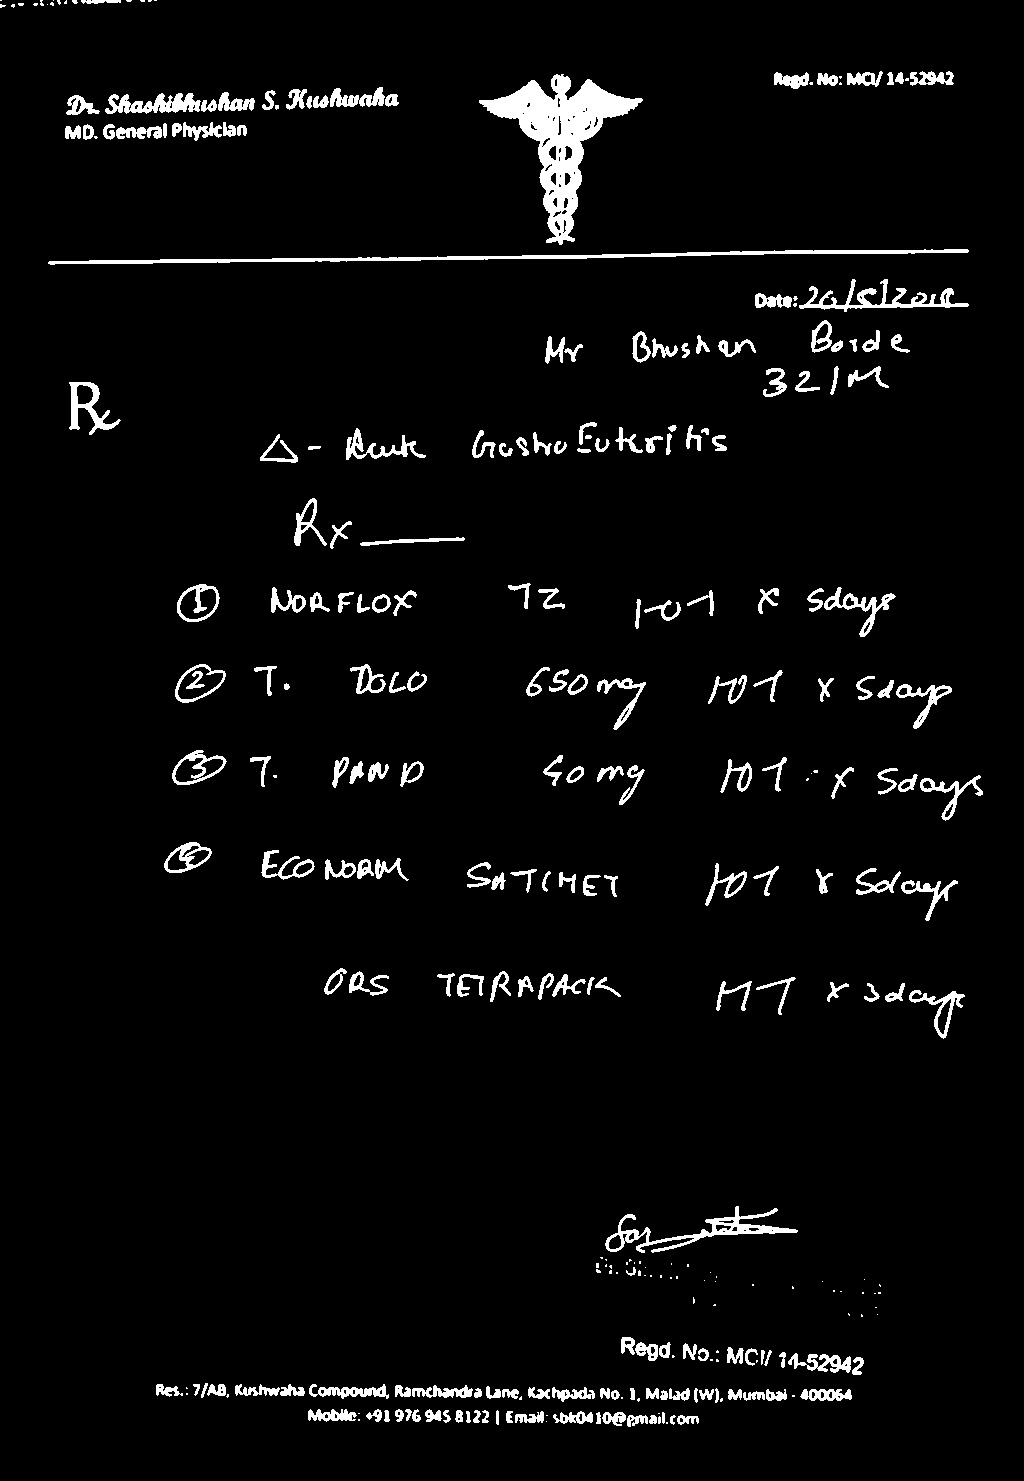 Dr. Shashibhushan S. Kushwaha
MD. General Physician
Regd. No: MCI/ 14-52942
Date: 26/5/2018
Mr Bhushan Borde
32/M
Rx
△ - Acute GastroEnteritis
Rx
① NORFLOX TZ 1-0-1 x 5days
② T. DOLO 650mg 1-0-1 x 5days
③ T. PAN D 40mg 1-0-1 x 5days
④ ECONORM SATCHET 1-0-1 x 5days
ORS TETRAPACK 1-1-1 x 3days
Regd. No.: MCI/ 14-52942
Res.: 7/AB, Kushwaha Compound, Ramchandra Lane, Kachpada No. 1, Malad (W), Mumbai - 400064
Mobile: +91 976 945 8122 | Email: sbk0410@gmail.com